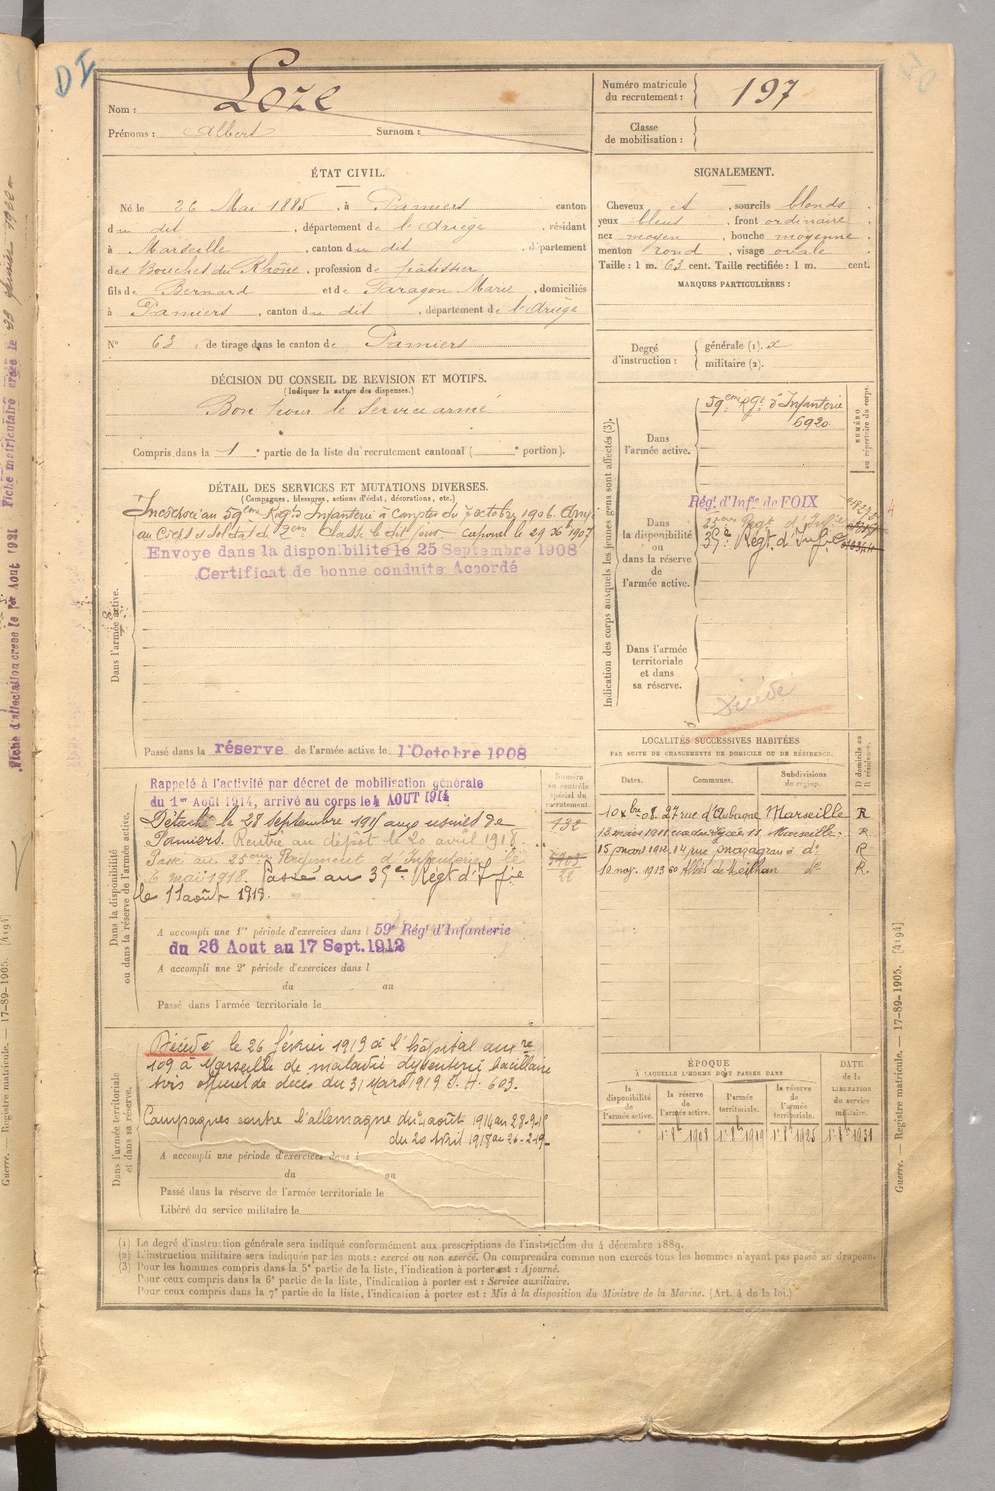 DI
Nom : Loze
Prénoms : Albert Surnom :
Numéro matricule
du recrutement : 197
Classe
de mobilisation :
ÉTAT CIVIL.
Né le 26 Mai 1885, à Pamiers canton
du dit, département de l'Ariège, résidant
à Marseille, canton du dit, département
des Bouches du Rhône, profession de pâtissier
fils de Bernard et de Faragon Marie, domiciliés
à Pamiers, canton du dit, département de l'Ariège
N° 63 de tirage dans le canton de Pamiers
SIGNALEMENT.
Cheveux et, sourcils blonds
yeux bleus, front ordinaire
nez moyen, bouche moyenne
menton rond, visage ovale
Taille : 1 m. 63 cent. Taille rectifiée : 1 m. cent.
MARQUES PARTICULIÈRES :
Degré
d'instruction :
générale (1).
militaire (2).
DÉCISION DU CONSEIL DE REVISION ET MOTIFS.
(Indiquer la nature des dispenses.)
Bon pour le Service armé
Compris dans la 1e partie de la liste du recrutement cantonal ( e portion).
DÉTAIL DES SERVICES ET MUTATIONS DIVERSES.
(Campagnes, blessures, actions d'éclat, décorations, etc.)
Incorporé au 59ème Régt Infanterie à compter du 7 octobre 1906. Arrivé
au Corps et soldat de 2ème classe le dit jour. Caporal le 29 Xbre 1907
Envoye dans la disponibilite le 25 Septembre 1908
Certificat de bonne conduite Accordé
Dans l'armée active.
Passé dans la réserve de l'armée active le 1 Octobre 1908
Indication des corps auxquels les jeunes gens sont affectés (3).
Dans
l'armée active.
59ème Rgt d'Infanterie
6920
NUMÉRO
au répertoire du corps.
Dans
la disponibilité
ou
dans la réserve
de
l'armée active.
Régt d'Infie de FOIX
25ème Régt d'Infie
35e Régt d'Infie
Dans l'armée
territoriale
et dans
sa réserve.
Décédé
LOCALITÉS SUCCESSIVES HABITÉES
PAR SUITE DE CHANGEMENTS DE DOMICILE OU DE RÉSIDENCE.
Dates. Communes. Subdivisions
de région.
D domicile ou
R résidence.
10 Xbre 08 27 rue d'Aubagne Marseille R
13 mars 1911 Marseille R
15 mars 1912 14 rue mazagran à do R
10 nov. 1913 60 Allées de Meilhan do R.
Dans la disponibilité
ou dans la réserve de l'armée active.
Numéro
au contrôle
spécial du
recrutement.
432
Rappelé à l'activité par décret de mobilisation générale
du 1er Août 1914, arrivé au corps le 4 AOUT 1914
Détaché le 28 septembre 1915 aux usines de
Pamiers. Rentré au dépôt le 20 avril 1918.
Passé au 25ème Régiment d'Infanterie le
6 mai 1918. Passé au 35e Régt d'Infie
le 11 août 1918.
A accompli une 1re période d'exercices dans l 59e Régt d'Infanterie
du 26 Aout au 17 Sept. 1912
A accompli une 2e période d'exercices dans l
du au
Passé dans l'armée territoriale le
Dans l'armée territoriale
et dans sa réserve.
Décédé le 26 février 1919 à l'hôpital auxre
109 à Marseille de maladie dysenterie bacillaire
avis officiel de décès du 31 Mars 1919 S. H. 603.
Campagnes contre l'allemagne du 4 août 1914 au 28-9-15
du 20 Avril 1918 au 26-2-19
A accompli une période d'exercices dans l
du au
Passé dans la réserve de l'armée territoriale le
Libéré du service militaire le
ÉPOQUE
À LAQUELLE L'HOMME DOIT PASSER DANS
DATE
de la
LIBÉRATION
du service
militaire.
la
disponibilité
de
l'armée active.
la réserve
de
l'armée active.
l'armée
territoriale.
la réserve
de
l'armée
territoriale.
1er 8bre 1908 1er 8bre 1919 1er 8bre 1925 1er 8bre 1931
(1) Le degré d'instruction générale sera indiqué conformément aux prescriptions de l'instruction du 4 décembre 1889.
(2) L'instruction militaire sera indiquée par les mots : exercé ou non exercé. On comprendra comme non exercés tous les hommes n'ayant pas passé au drapeau.
(3) Pour les hommes compris dans la 5e partie de la liste, l'indication à porter est : Ajourné.
Pour ceux compris dans la 6e partie de la liste, l'indication à porter est : Service auxiliaire.
Pour ceux compris dans la 7e partie de la liste, l'indication à porter est : Mis à la disposition du Ministre de la Marine. (Art. 4 de la loi.)
Guerre. — Registre matricule. — 17-89-1905. [4194]
Guerre. — Registre matricule. — 17-89-1905. [4194]
Fiche d'affectation créée le 1er Aout 1921 Fiche matriculaire créée le 28 février 1922